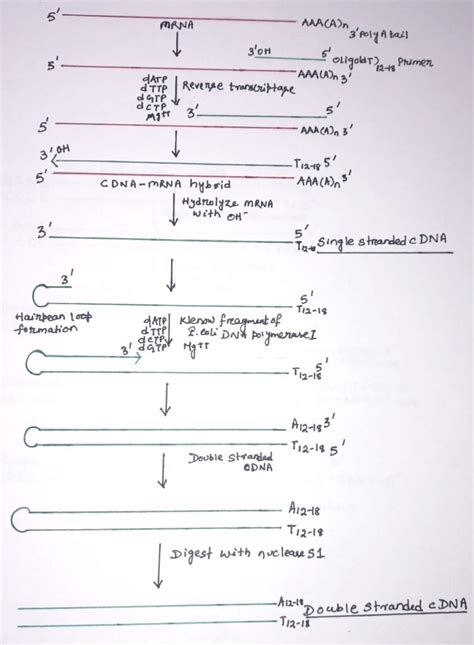 5' AAA(A)n
mRNA 3' Poly A tail
3'OH 5' Oligo(dT)12-18 Primer
5' AAA(A)n 3'
dATP
dTTP Reverse transcriptase
dGTP
dCTP 3' 5'
Mg++
5' AAA(A)n 3'
3' OH T12-18 5'
5' AAA(A)n 3'
CDNA-mRNA hybrid
Hydrolyze mRNA
with OH-
3' 5'
T12-18 Single stranded cDNA
3'
5'
T12-18
Hairpean loop
formation
dATP Klenow freagment of
dTTP E.coli DNA polymerase I
dCTP Mg++
dGTP
3' 5'
T12-18
A12-18 3'
T12-18 5'
Double stranded
CDNA
A12-18
T12-18
Digest with nuclease S1
A12-18 Double stranded cDNA
T12-18